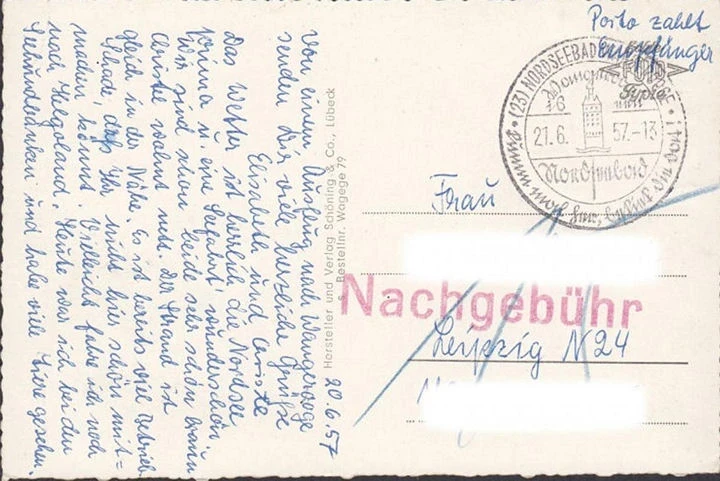 20.6.57
Von einem Ausflug nach Wangerooge
senden Dir viele herzliche Grüße
Elisabeth und Christe
Das Wetter ist herrlich die Nordsee
prima u. eine Seefahrt wunderschön.
Wir sind schon beide sehr schön braun
Christe wohnt mit. Der Strand ist
gleich in der Nähe. Es ist bereits viel Betrieb
Schade, daß Ihr nicht hier schön mit=
machen könnt. Vielleicht fahre ich noch
nach Helgoland. Heute war ich bei den
Seehundsbänken und habe viele Tiere gesehen.
Hersteller und Verlag Schöning & Co., Lübeck
Bestellnr. Wagege 79
Porto zahlt
Empfänger
(23) NORDSEEBAD
21.6. 57.-13
Nordseebad
Nimm mich
FOTO
Frau
Nachgebühr
Leipzig N 24